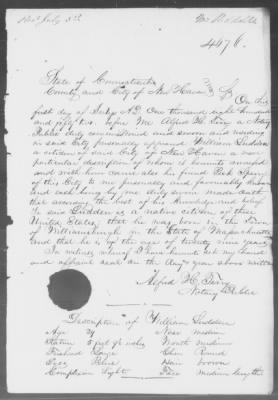 Rec July 3rd
4476.
State of Connecticut
County and City of New Haven } Ss
On this
first day of July A.D. One thousand eight hundred
and fifty two before Me Alfred H. Terry a Notary
Public duly commissioned and sworn and residing
in said City personally appeared William Ludden
a citizen and City of New Haven a more
particular description of whom is hereunto annexed
and with him came also his friend
of this City to me personally and favorably known
and each being by me duly sworn made Oath
that according the best of his knowledge and belief
he said Ludden is a native citizen of the
United States, that he was born in the Town
of Williamsburgh in the State of Massachusetts
and that he is of the age of twenty nine years.
In witness whereof I have hereunto set my hand
and affixed seal on the day & year above written
Alfred H. Terry
Notary Public
Description of William Ludden
Age 29 Nose medium
Stature 5 feet inches Mouth medium
Forehead Large Chin Round
Eyes Blue Hair brown
Complexion Light Face medium length